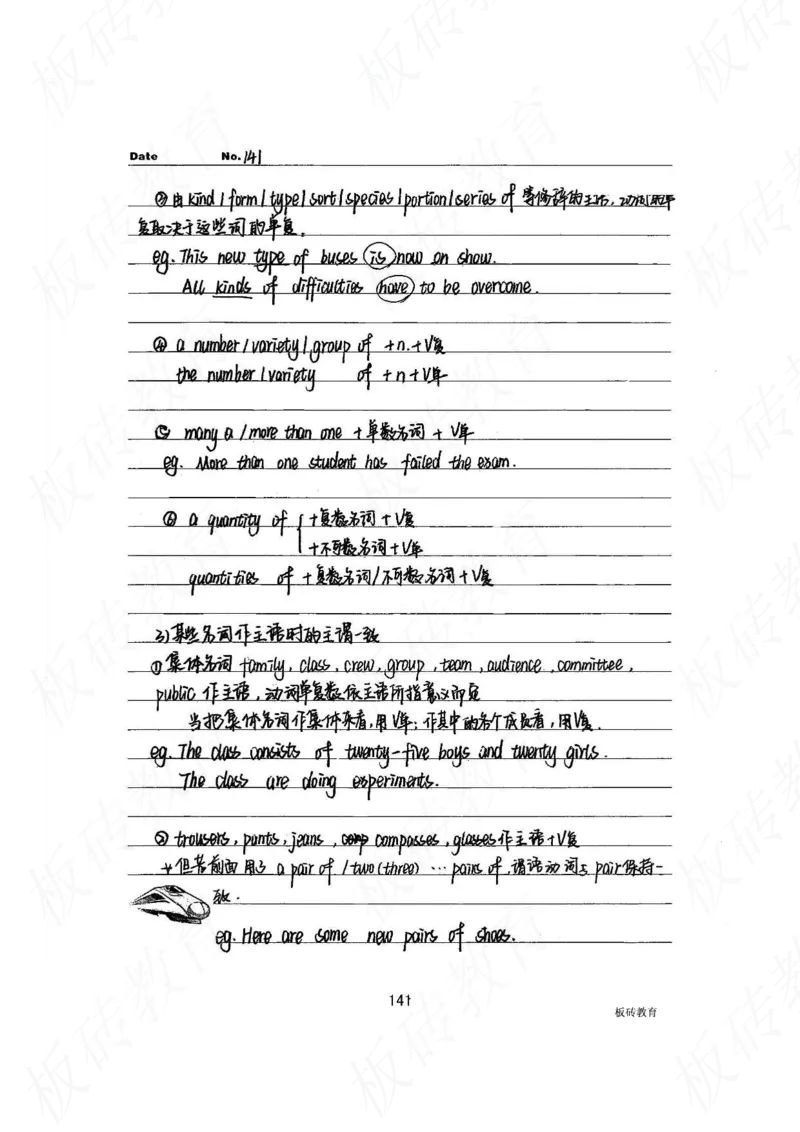 Date No. 141
③由 kind / form / type / sort / species / portion / series of 等修辞的主语，动词的单
复取决于这些词的单复.
eg. This new type of buses is now on show.
All kinds of difficulties have to be overcome.
④ a number / variety / group of +n.+V复
the number / variety of +n+V单
⑤ many a / more than one +单数名词 + V单
eg. More than one student has failed the exam.
⑥ a quantity of { +复数名词+V复
+不可数名词+V单
quantities of +复数名词/不可数名词+V复
3)某些名词作主语时的主谓一致
①集体名词 family, class, crew, group, team, audience, committee,
public 作主语，动词单复数依主语所指意义而定
当把集体名词作集体来看，用V单；作其中的各个成员看，用V复.
eg. The class consists of twenty-five boys and twenty girls.
The class are doing experiments.
② trousers, pants, jeans, compasses, glasses作主语+V复
→但若前面用了 a pair of / two (three) … pairs of，谓语动词与pair保持一
致.
eg. Here are some new pairs of shoes.
141
板砖教育